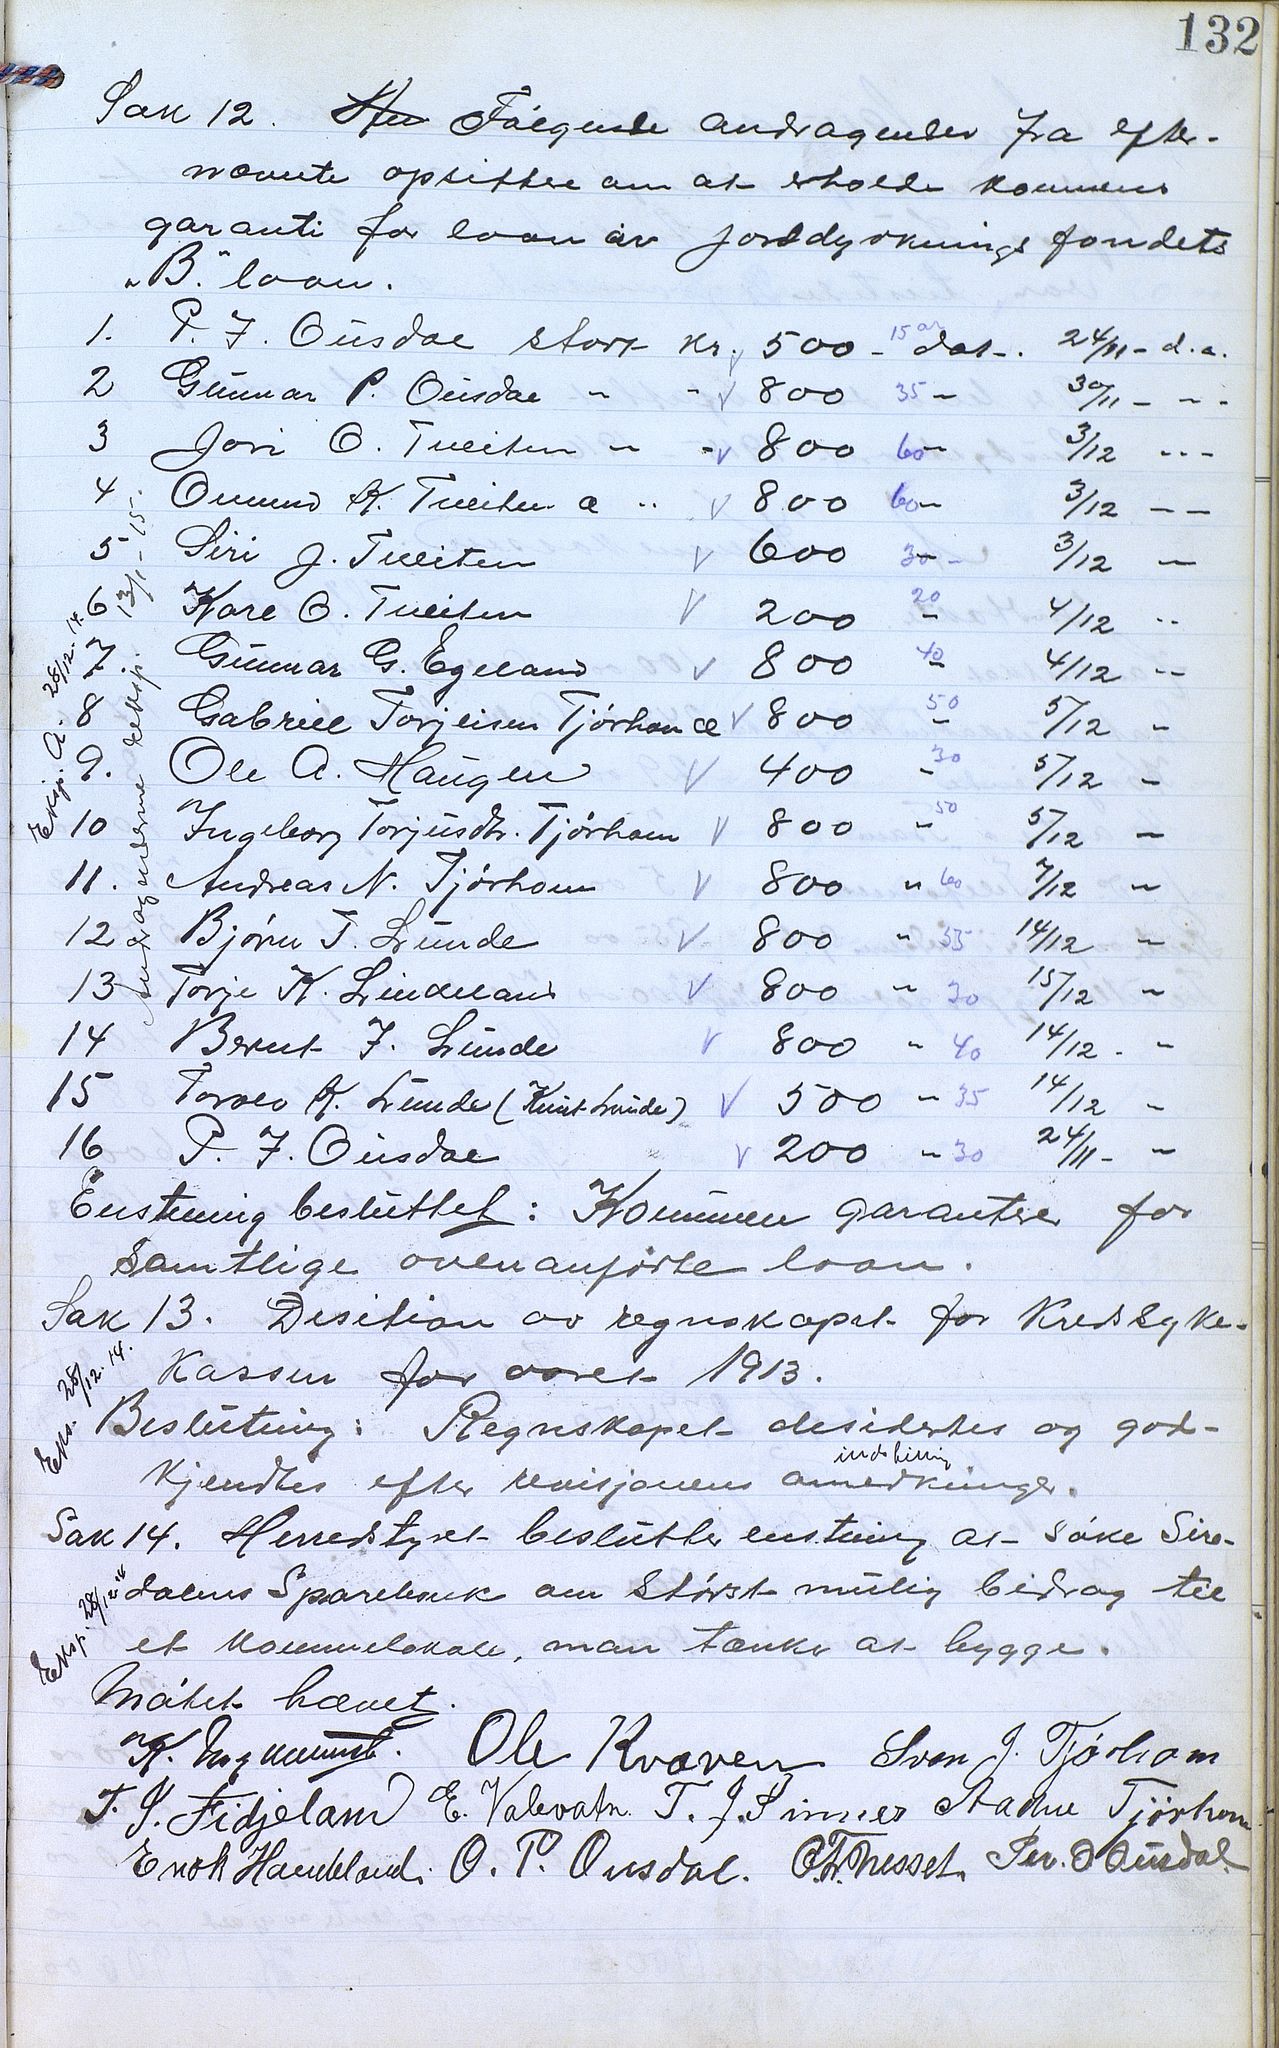 132
Sak 12. Følgende andragender fra efter-
nævnte opsittere om at erholde kommens
garanti for loan av jorddyrknings fondets
"B." loan.
1. P. F. Ousdal stort kr. 500 - 15 år dat. 24/11 - d.a.
2 Gunnar P. Ousdal " " 800 35 " 30/11 - " -
3 Jori O. Tveiten " " 800 60 " 3/12 " -
4 Omund K. Tveiten " 800 60 " 3/12 " -
5 Siri J. Tveiten 600 30 " 3/12 "
6 Kare O. Tveiten 200 20 " 4/12 "
7. Gunnar G. Egeland 800 40 " 4/12 "
8 Gabriel Torjeisen Tjörhom 800 50 " 5/12 "
9. Ole A. Haugen 400 " 30 5/12 "
10 Ingeborg Torjusdtr. Tjörhom 800 " 50 5/12 "
11. Andreas N. Tjörhom 800 " 60 7/12 "
12 Bjørn T. Lunde 800 " 35 14/12 "
13 Torje K. Lindeland 800 " 30 15/12 "
14 Bernt F. Lunde 800 " 40 14/12 - "
15 K. Lunde (Knut Lunde) 500 " 35 14/12 "
16 P. F. Ousdal 200 " 30 24/11 - "
Eksp. A. 28/12-14.
Andragenderne eksp. 13/1-15.
Enstemmig besluttet: Kommen garanterer for
samtlige ovenanførte loan.
Sak 13. Desition av regnskapet for Kredssyke-
kassen for aaret 1913.
Eks. 28/12-14.
Beslutning: Regnskapet desidertes og god-
indstilling
kjendtes efter revisjonens anmerkninger.
Sak 14. Herredstyret beslutter enstemmig at søke Sire-
dalens Sparebank om størst mulig bidrag til
et kommelokale, man tænker at bygge.
Eksp. 28/12-14
Møtet hævet.
Ole Kvæven Sven J. Tjørhom
T. S. Fidjeland E. Valevatn T. J. Sinnes Tjørhom
Enok Handeland. O. P. Ousdal. Tnesset. Per. O Ousdal.